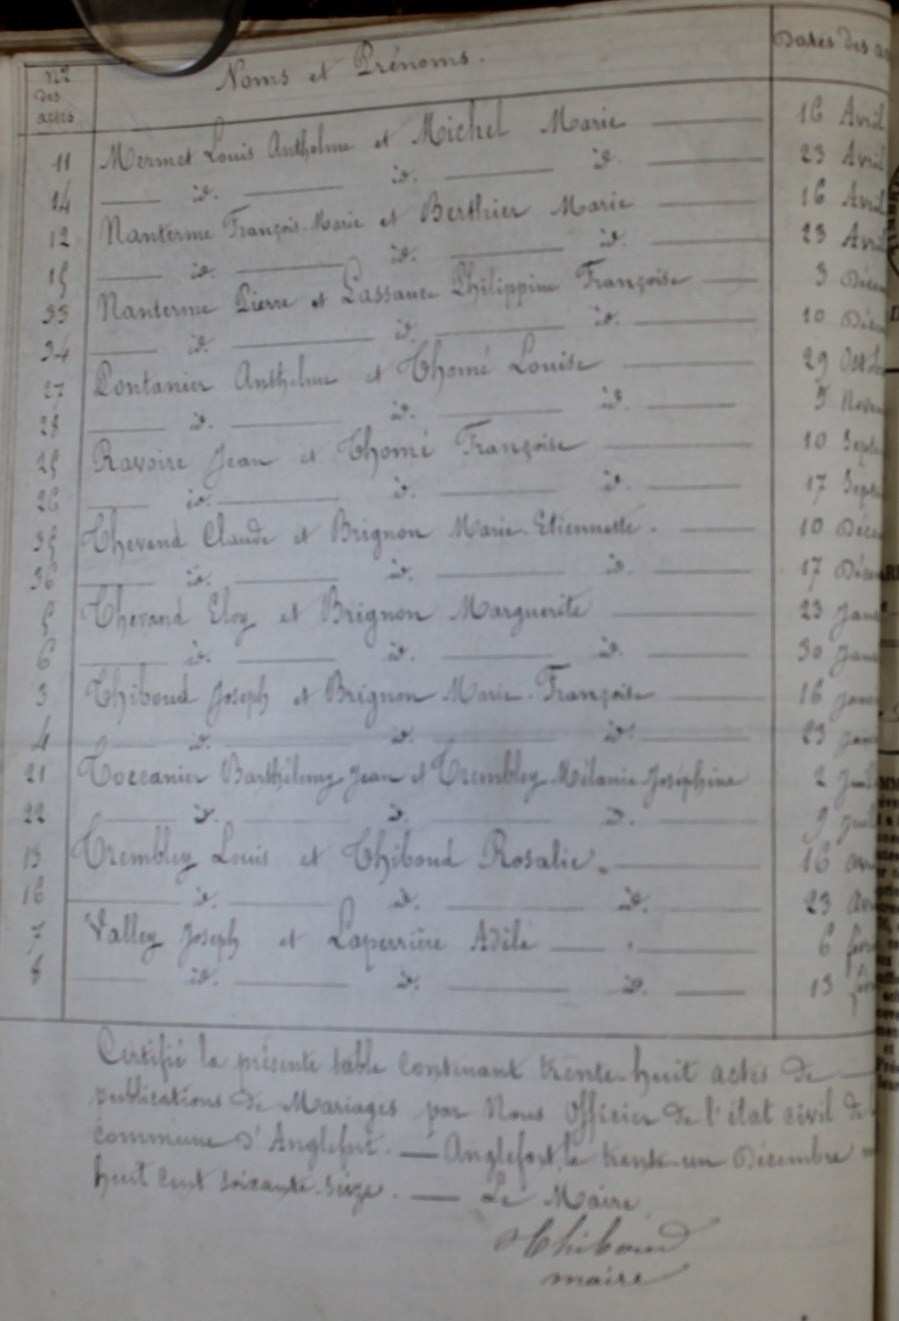 Nos des actes Noms et Prénoms. Dates des
11 Mermet Louis Anthelme et Michel Marie 16 Avril
14 id. id. id. 23 Avril
12 Nanterme François-Marie et Berthier Marie 16 Avril
15 id. id. id. 23 Avril
33 Nanterme Pierre et Lassauce Philippine Françoise 3
34 id. id. id. 10
27 Pontanier Anthelme et Thomé Louise 29
28 id. id. id. 5
25 Ravoire Jean et Thomé Françoise 10
26 id. id. id. 17
35 Chevend Claude et Brignon Marie-Etiennette. 10
36 id. id. id. 17
5 Chevand Eloy et Brignon Marguerite 23
6 id. id. id. 30
3 Thiboud Joseph et Brignon Marie-Françoise 16
4 id. id. id. 23
21 Toccanier Barthélemy Jean et Trembley Mélanie Joséphine 2
22 id. id. id. 9
15 Trembley Louis et Thiboud Rosalie. 16
16 id. id. id. 23
7 Valley Joseph et Laperrière Adèle 6
8 id. id. id. 13
Certifié la présente table contenant trente-huit actes de
publications de Mariages par Nous Officier de l'état civil de
commune d'Anglefort. — Anglefort, le trente-un Décembre
huit cent soixante-seize. — Le Maire
Thiboud
maire